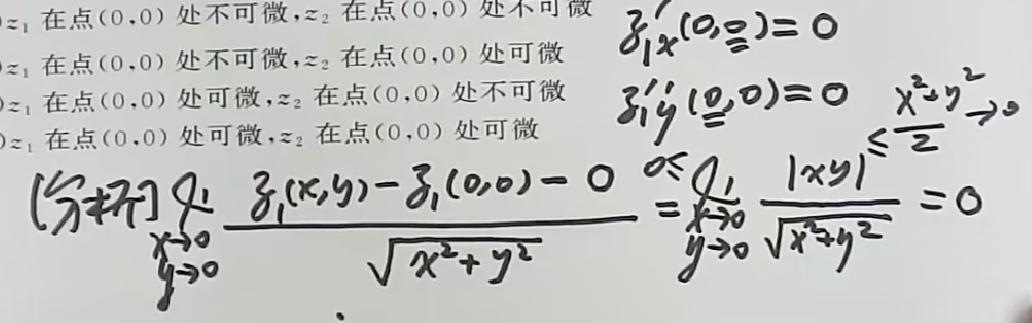 )z₁ 在点(0,0) 处不可微,z₂ 在点(0,0) 处不可微
)z₁ 在点(0,0) 处不可微,z₂ 在点(0,0) 处可微
)z₁ 在点(0,0) 处可微,z₂ 在点(0,0) 处不可微
)z₁ 在点(0,0) 处可微,z₂ 在点(0,0) 处可微
z₁'x(0,0)=0
z₁'y(0,0)=0
[分析] lim x→0 y→0 (z₁(x,y)-z₁(0,0)-0)/√(x²+y²) = 0≤ lim x→0 y→0 |xy|/√(x²+y²) = 0
≤ (x²+y²)/2 →0